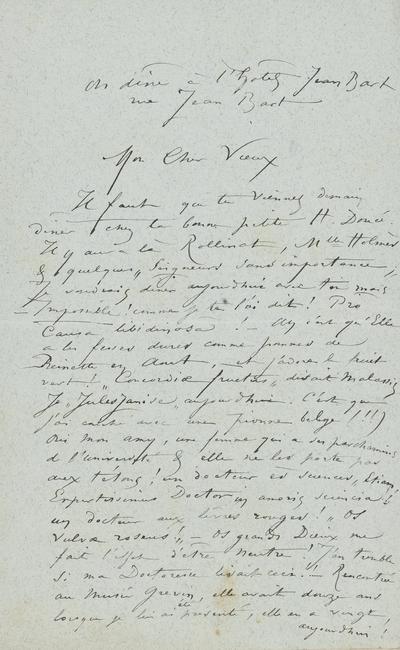 On dîne à l'hôtel Jean Bart
rue Jean Bart
Mon Cher Vieux
Il faut que tu viennes demain
diner chez la bonne petite H. Doucé.
Il y aura là Rollinat, Mlle Holmès
& quelques "Seigneurs sans importance",
Je voudrais diner aujourd'hui avec toi mais
Impossible! comme je te l'ai dit! Pro
Causa libidinosa! – Ah c'est qu'Elle
a les fesses dures comme pommes de
Reinette en Aout – et j'adore le fruit
vert! "Concordiæ fructus" disait Malassis
Je "Julesjanise" aujourd'hui. C'est que
j'ai couché avec une pivoine belge!!!)
Oui mon amy, une femme qui a ses parchemins
de l'université & elle ne les porte pas
aux tétons! un docteur es sciences,
Expertissimus Doctor in amoris scientia &
un docteur aux lèvres rouges! "Os
vulvæ roseus!" – Os grands Dieux me
fait l'effet d'être neutre!
Si ma Doctoresse lisait ceci! – Rencontrée
au Musée Grevin, elle avait douze ans
lorsque je lui ai été présenté, elle en a vingt,
aujourd'hui!